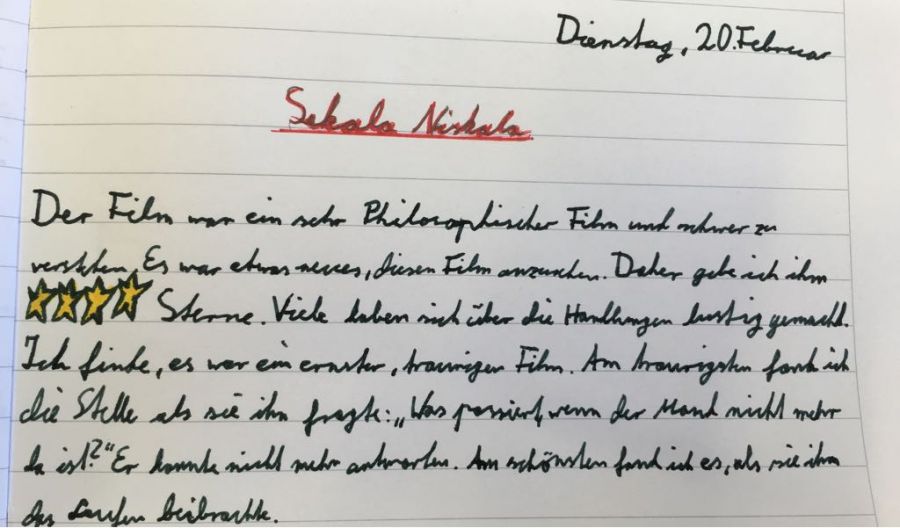 Dienstag, 20. Februar
Sekala Niskala
Der Film war ein sehr Philosophischer Film und schwer zu
verstehen. Es war etwas neues, diesen Film anzusehen. Daher gebe ich ihm
Sterne. Viele haben sich über die Handlungen lustig gemacht.
Ich finde, es war ein ernster, trauriger Film. Am traurigsten fand ich
die Stelle als sie ihn fragte: „Was passiert, wenn der Mond nicht mehr
da ist?“ Er konnte nicht mehr antworten. Am schönsten fand ich es, als sie ihm
das Laufen beibrachte.